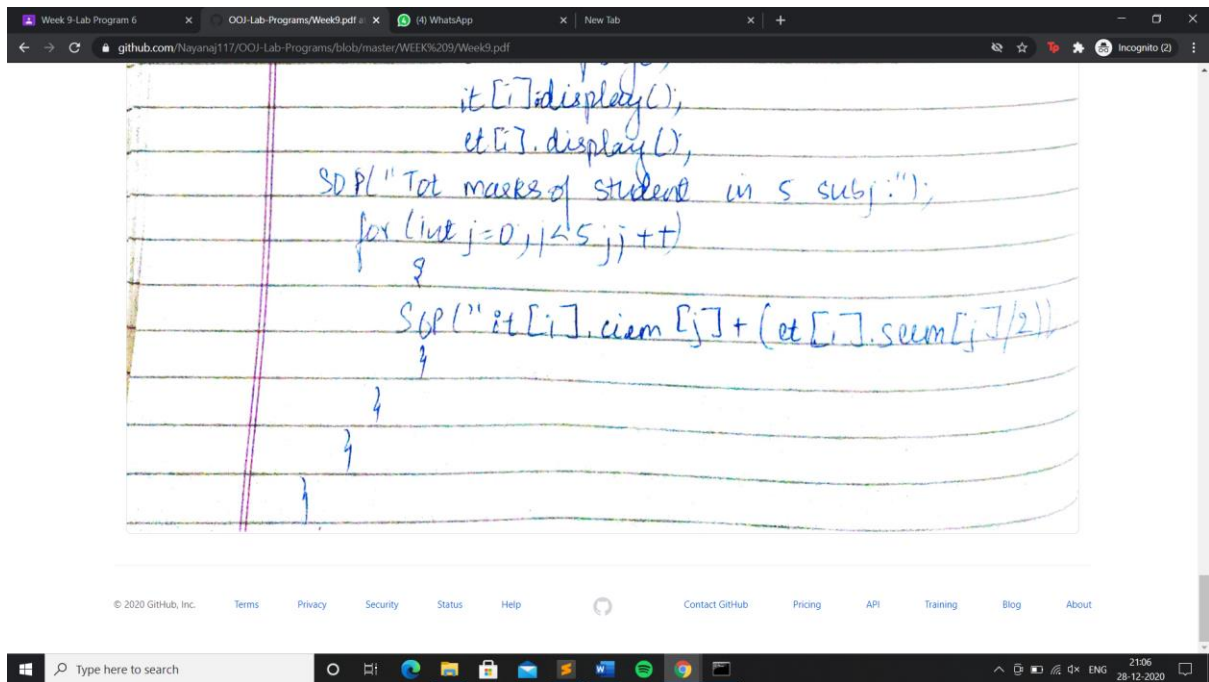 Week 9-Lab Program 6
OOJ-Lab-Programs/Week9.pdf a
(4) WhatsApp
New Tab
github.com/Nayanaj117/OOJ-Lab-Programs/blob/master/WEEK%209/Week9.pdf
Incognito (2)
it[i].display();
et[i].display();
SOP("Tot marks of student in 5 subj:");
for (int j=0; j<5; j++)
{
SOP("it[i].ciem[j]+(et[i].seem[j]/2))
}
}
}
}
© 2020 GitHub, Inc. Terms Privacy Security Status Help Contact GitHub Pricing API Training Blog About
Type here to search
ENG
21:06
28-12-2020